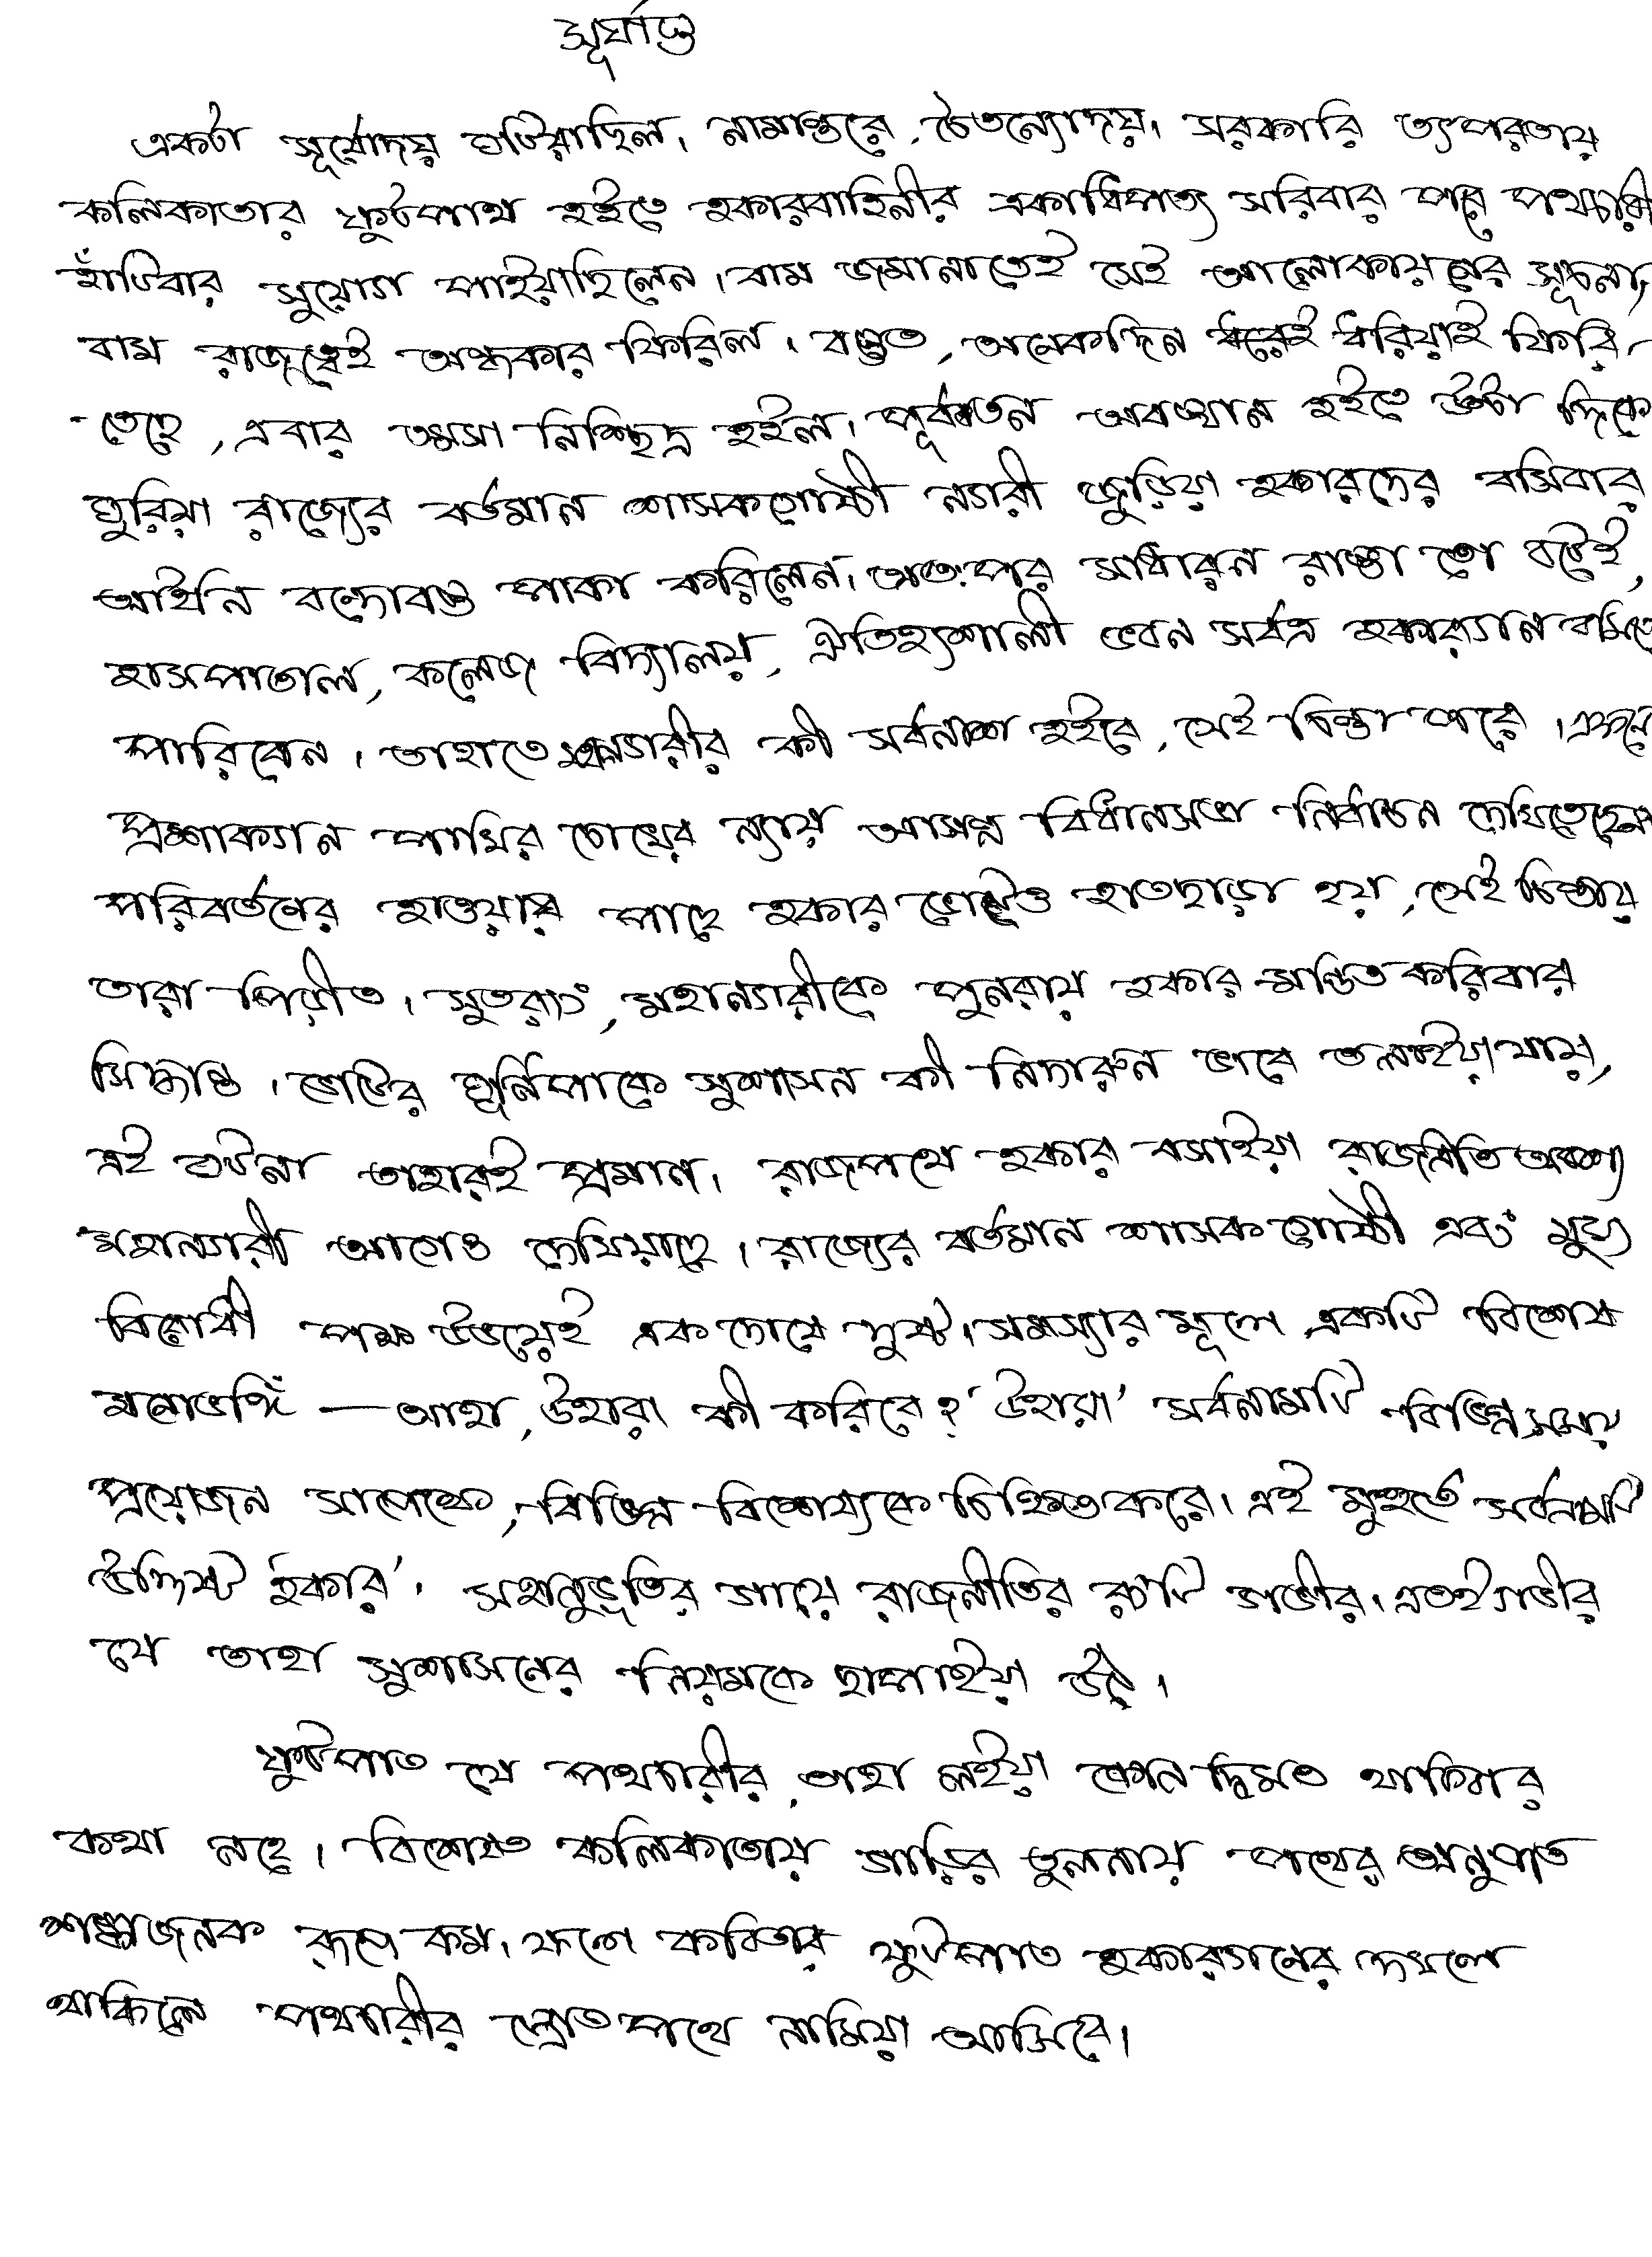 সূর্যাস্ত
একটা সূর্যোদয় ঘটিয়াছিল। নামান্তরে, চৈতন্যোদয়। সরকারি তৎপরতায়
কলিকাতার ফুটপাথ হইতে হকারবাহিনীর একাধিপত্য সরিবার পরে পথচারী
হাঁটিবার সুযোগ পাইয়াছিলেন। বাম জমানাতেই সেই আলোকায়নের সূচনা,
বাম রাজত্বেই অন্ধকার ফিরিল। বস্তুত, অনেকদিন ধরেই ধরিয়াই ফিরি-
-তেছে, এবার তমসা নিশ্ছিদ্র হইল। পূর্বতন অবস্থান হইতে উল্টা দিকে
ঘুরিয়া রাজ্যের বর্তমান শাসকগোষ্ঠী নগরী জুড়িয়া হকারদের বসিবার
আইনি বন্দোবস্ত পাকা করিলেন। অতঃপর সাধারন রাস্তা তো বটেই,
হাসপাতাল, কলেজ বিদ্যালয়, ঐতিহ্যশালী ভবন সর্বত্র হকারগন বসিতে
পারিবেন। তাহাতে মহানগরীর কী সর্বনাশ হইবে, সেই চিন্তা পরে। এক্ষনে
প্রশাসকগন পাখির চোখের ন্যায় আসন্ন বিধানসভা নির্বাচন দেখিতেছেন
পরিবর্তনের হাওয়ায় পাছে হকার ভোটও হাতছাড়া হয়, সেই চিন্তায়
তারা পিড়ীত। সুতরাং, মহানগরীকে পুনরায় হকার-মন্ডিত করিবার
সিদ্ধান্ত। ভোটের ঘূর্নিপাকে সুশাসন কী নিদারুন ভাবে তলাইয়া যায়,
এই ঘটনা তাহারই প্রমান। রাজপথে হকার বসাইয়া রাজনীতি অবশ্য
মহানগরী আগেও দেখিয়াছে। রাজ্যের বর্তমান শাসক গোষ্ঠী এবং মুখ্য
বিরোধী পক্ষ উভয়েই এক দোষে দুষ্ট। সমস্যার মূলে একটি বিশেষ
মনোভঙ্গি — আহা, উহারা কী করিবে? 'উহারা' সর্বনামটি বিভিন্ন সময়
প্রয়োজন সাপেক্ষে, বিভিন্ন বিশেষ্যকে চিহ্নিত করে। এই মুহুর্তে সর্বনামটি
উদ্দিষ্ট 'হকার'। সহানুভূতির গায়ে রাজনীতির রংটি গভীর। এতই গভীর
যে তাহা সুশাসনের নিয়মকে ছাপাইয়া উঠে।
ফুটপাত যে পথচারীর, তাহা লইয়া কোন দ্বিমত থাকিবার
কথা নহে। বিশেষত কলিকাতায় গাড়ির তুলনায় পথের অনুপাত
শঙ্কাজনক রূপে কম। ফলে ফুটপাত হকারগনের দখলে
থাকিলে পথচারীর স্রোত পথে নামিয়া আসিবে।